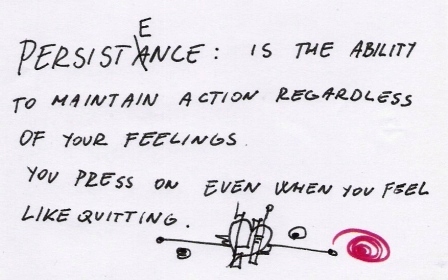 PERSISTENCE: IS THE ABILITY
TO MAINTAIN ACTION REGARDLESS
OF YOUR FEELINGS.
YOU PRESS ON EVEN WHEN YOU FEEL
LIKE QUITTING.